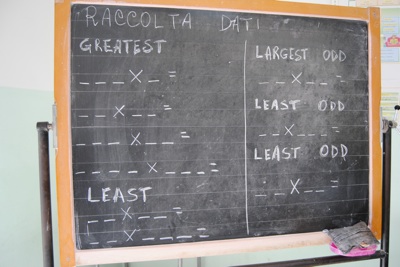 RACCOLTA DATI
GREATEST
_ _ _ × _ =
_ _ × _ _ =
_ _ _ × _ _ =
_ _ _ _ × _ _ _ =
LEAST
_ _ × _ _ =
_ _ × _ _ _ _ =
LARGEST ODD
_ _ × _ _ =
LEAST ODD
_ _ × _ _ _ =
LEAST ODD
_ _ × _ _ =